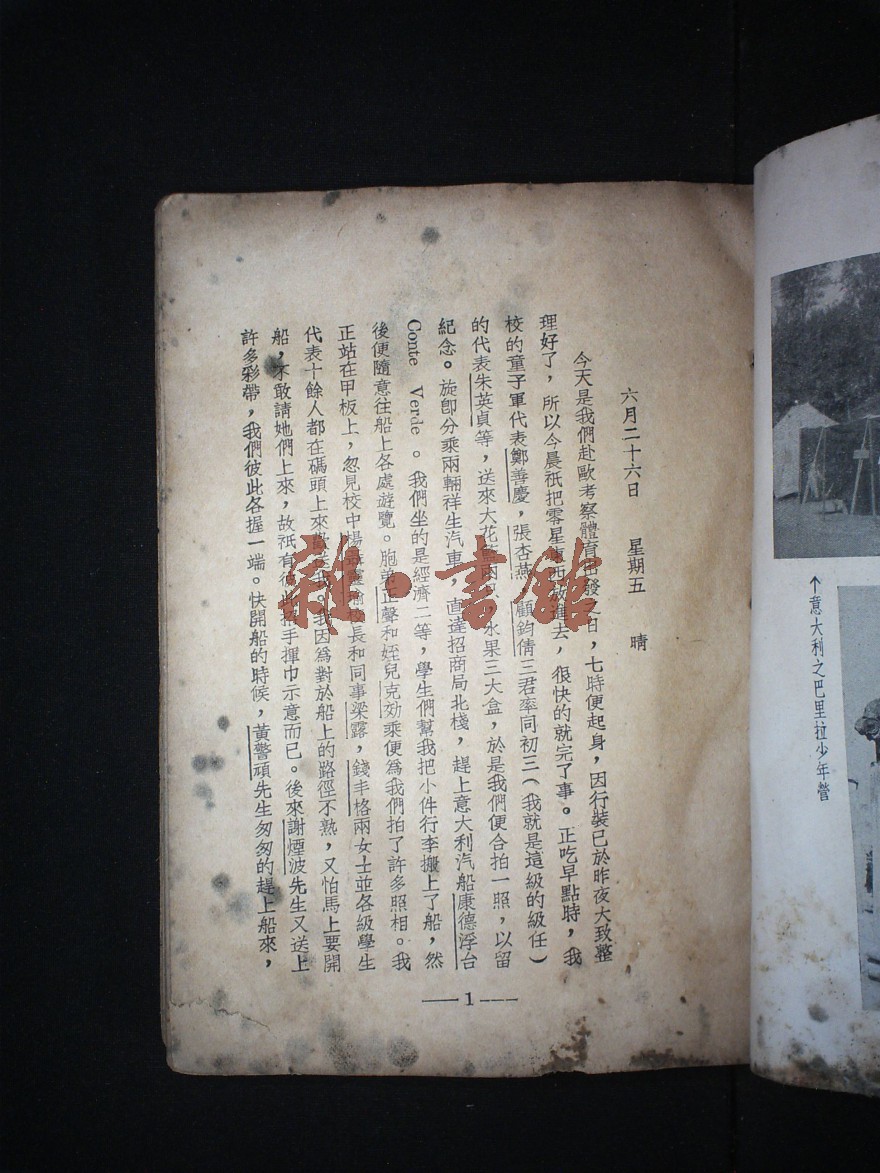 六月二十六日　星期五　晴
今天是我們赴歐考察體育出發之日，七時便起身，因行裝已於昨夜大致整
理好了，所以今晨祇把零星東西放進去，很快的就完了事。正吃早點時，我
校的童子軍代表鄭善慶，張杏燕，顧鈞倩三君率同初三（我就是這級的級任）
的代表朱英貞等，送來大花籃兩只，水果三大盒，於是我們便合拍一照，以留
紀念。旋卽分乘兩輛祥生汽車，直達招商局北棧，趕上意大利汽船康德浮台
Conte Verde。我們坐的是經濟二等，學生們幫我把小件行李搬上了船，然
後便隨意往船上各處遊覽。胞弟正聲和姪兒克効乘便爲我們拍了許多照相。我
正站在甲板上，忽見校中楊校長和同事梁露，錢丰格兩女士並各級學生
代表十餘人都在碼頭上來歡送我，我因爲對於船上的路徑不熟，又怕馬上要開
船，不敢請她們上來，故祇有彼此招手揮巾示意而已。後來謝煙波先生又送上
許多彩帶，我們彼此各握一端。快開船的時候，黃警頑先生匆匆的趕上船來，
—1—
↑意大利之巴里拉少年營
雜·書館